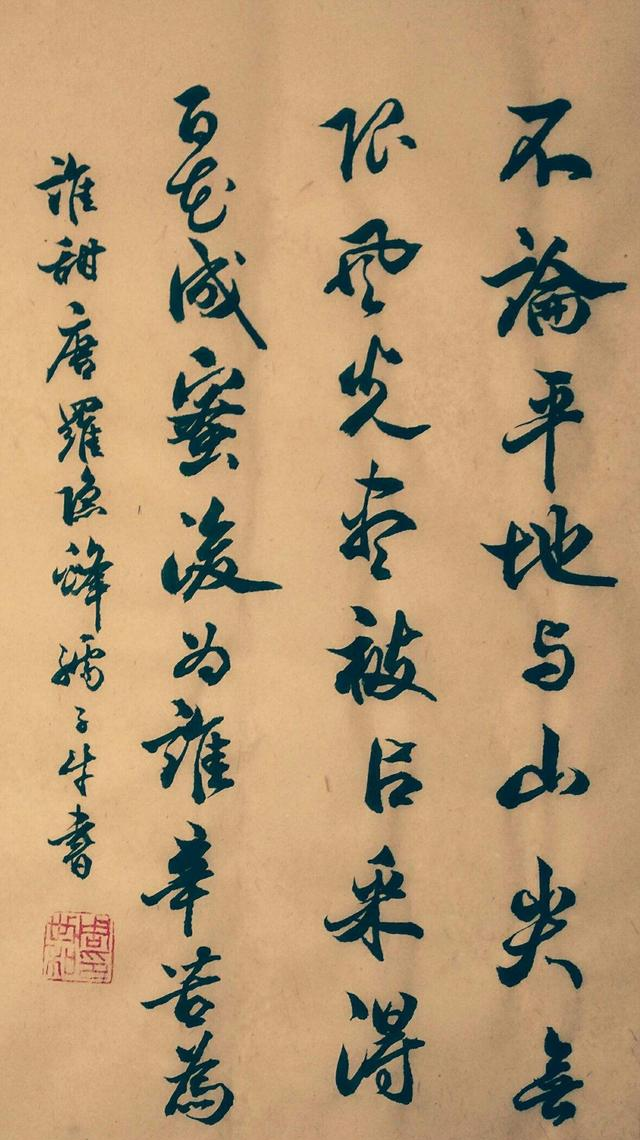 不論平地与山尖無
限風光盡被占采得
百花成蜜後为誰辛苦為
誰甜唐羅隐蜂孺子牛書